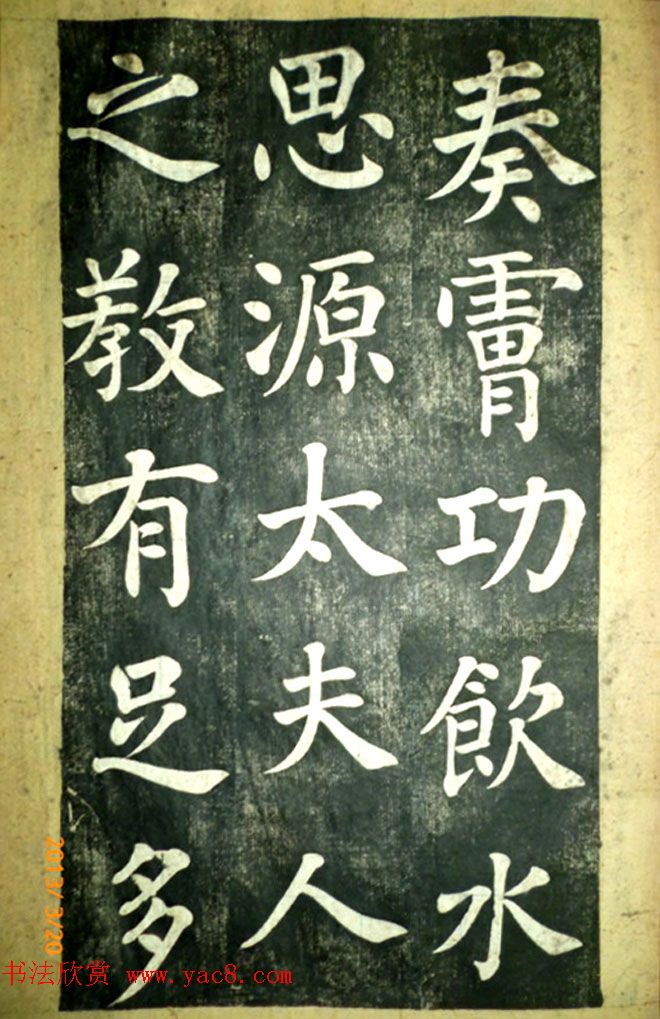 奏膚功飲水
思源太夫人
之教有足多
2013/ 3/20
书法欣赏 www.yac8.com